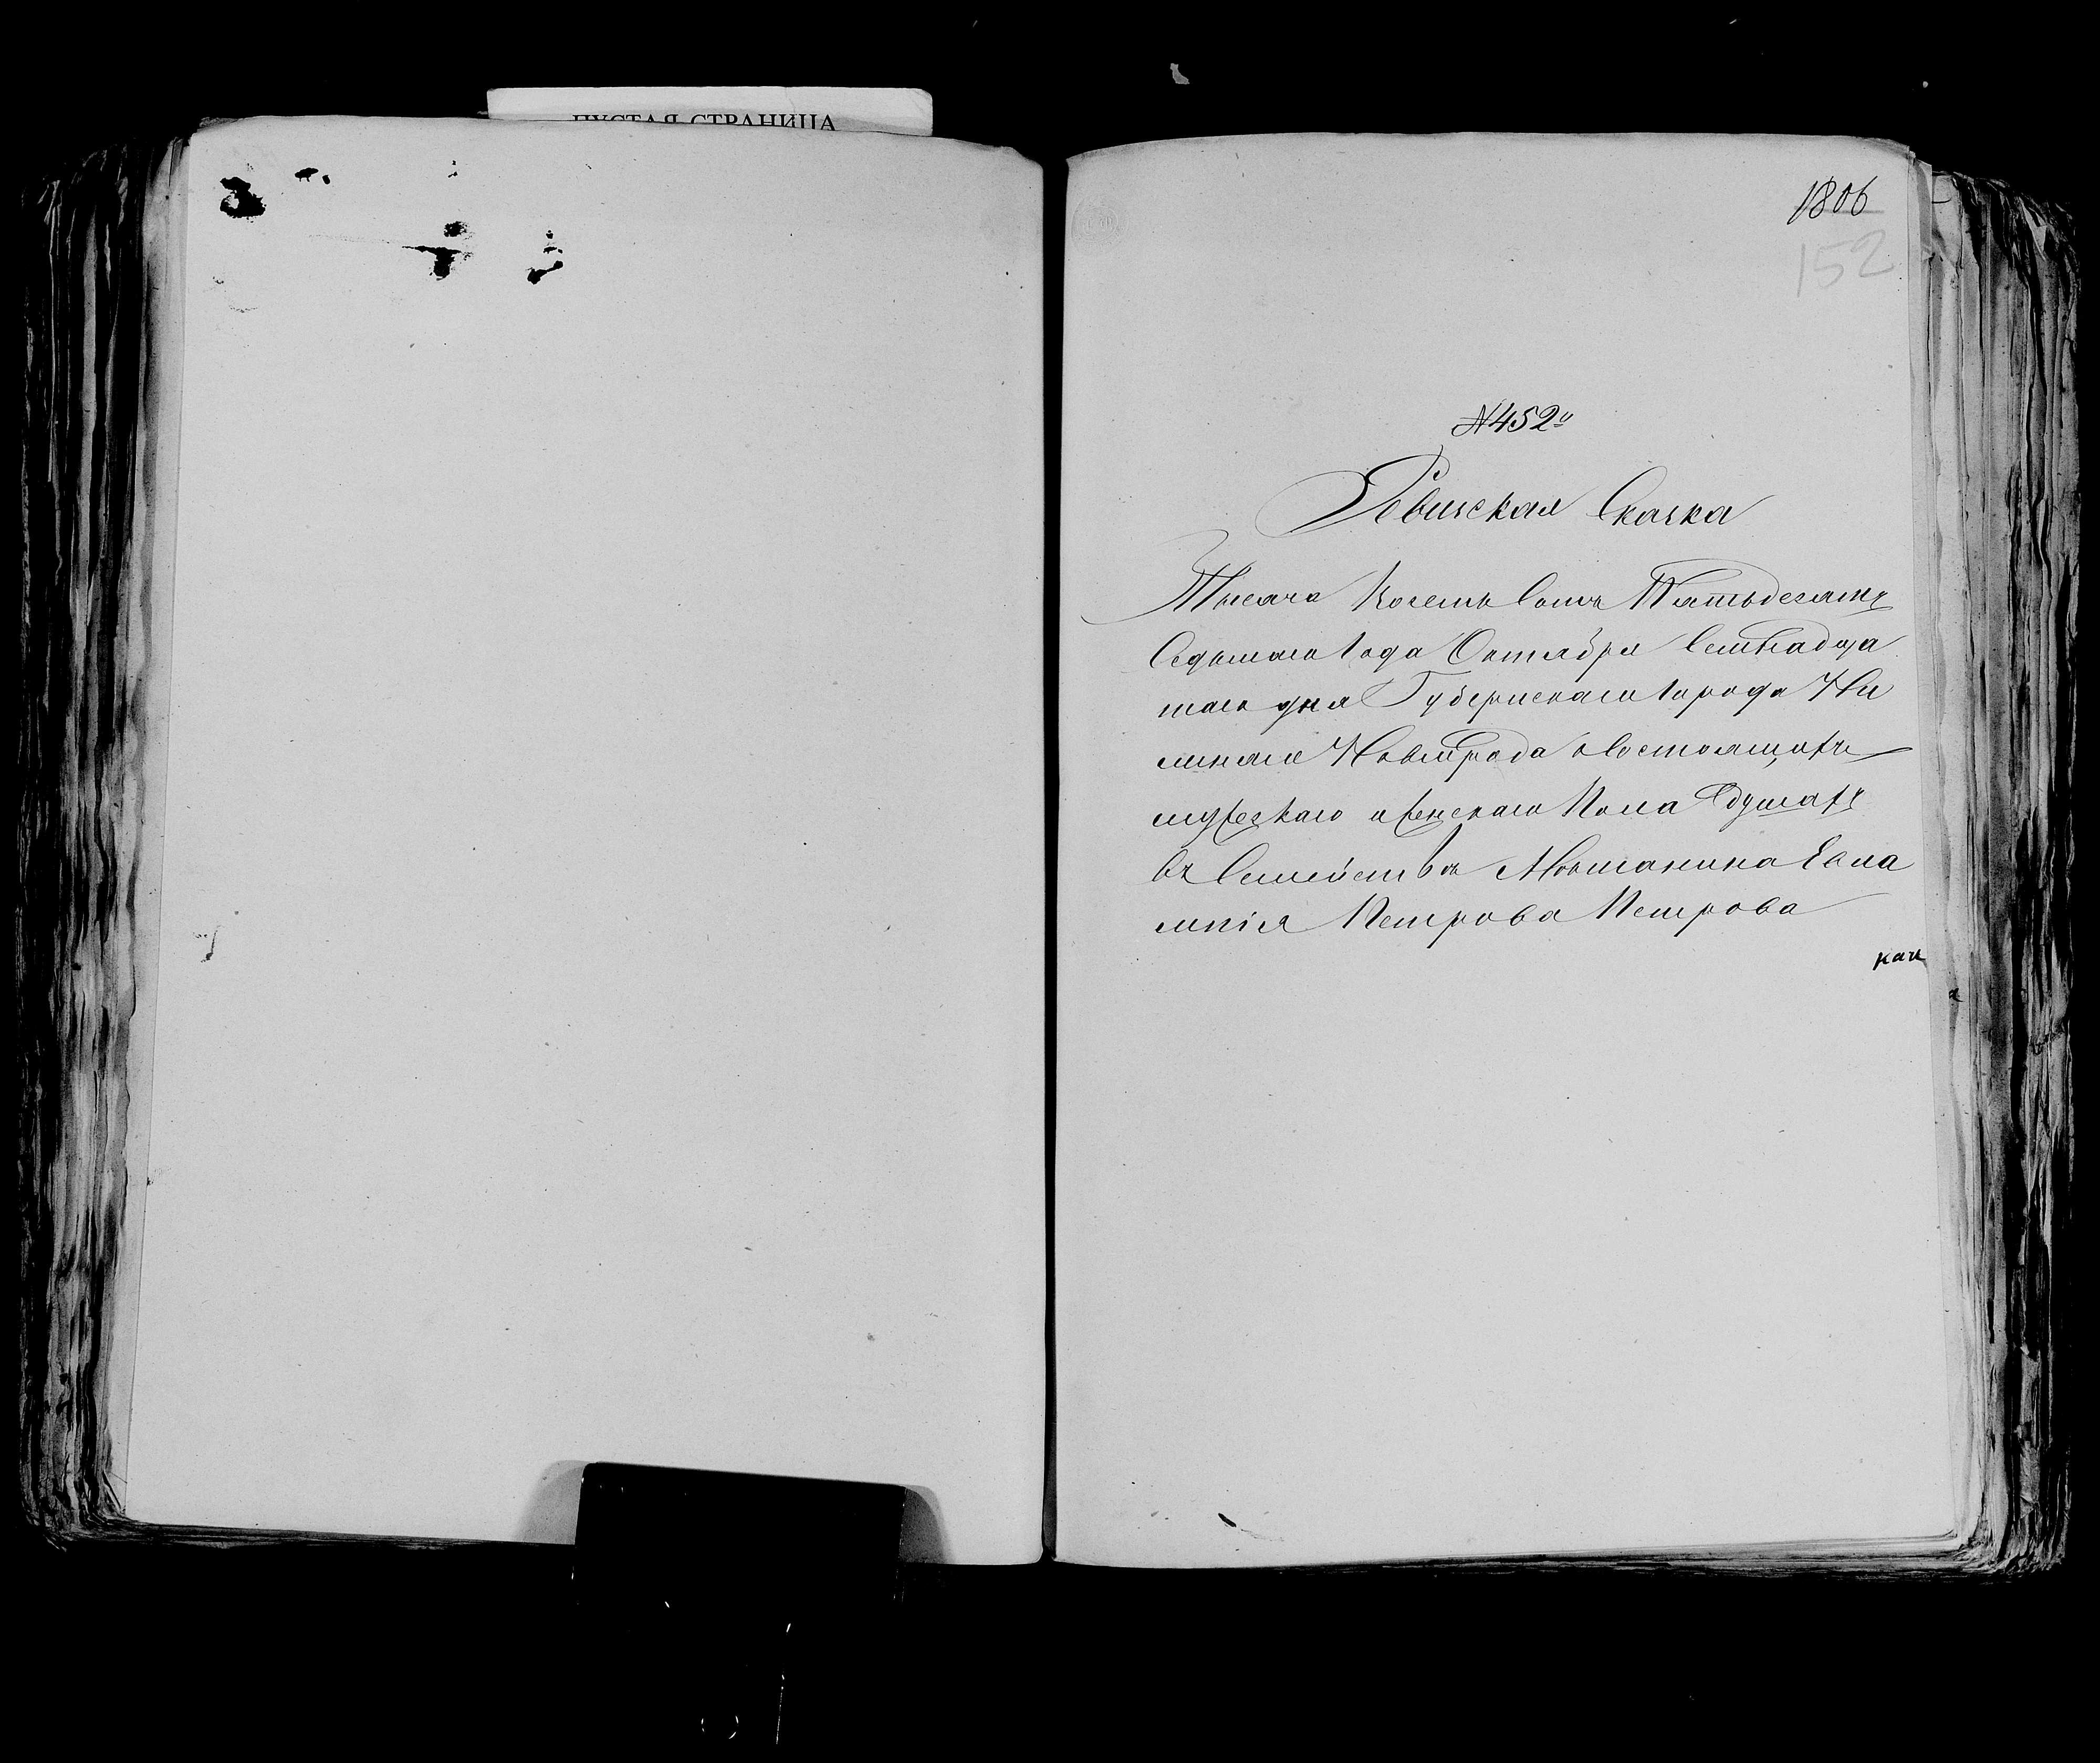 ПУСТАЯ СТРАНИЦА
1806
152
№452й
Ревизская Сказка
Тысяча Восемь Сотъ Пятьдесятъ
Седьмаго Года Октября Семнадца
таго дня Губернскаго Города Ни
жняго Новгорода о состоящихъ
мужескаго и женскаго Пола Душахъ
въ Семействѣ Мѣщанина Евла
мпія Петрова Петрова